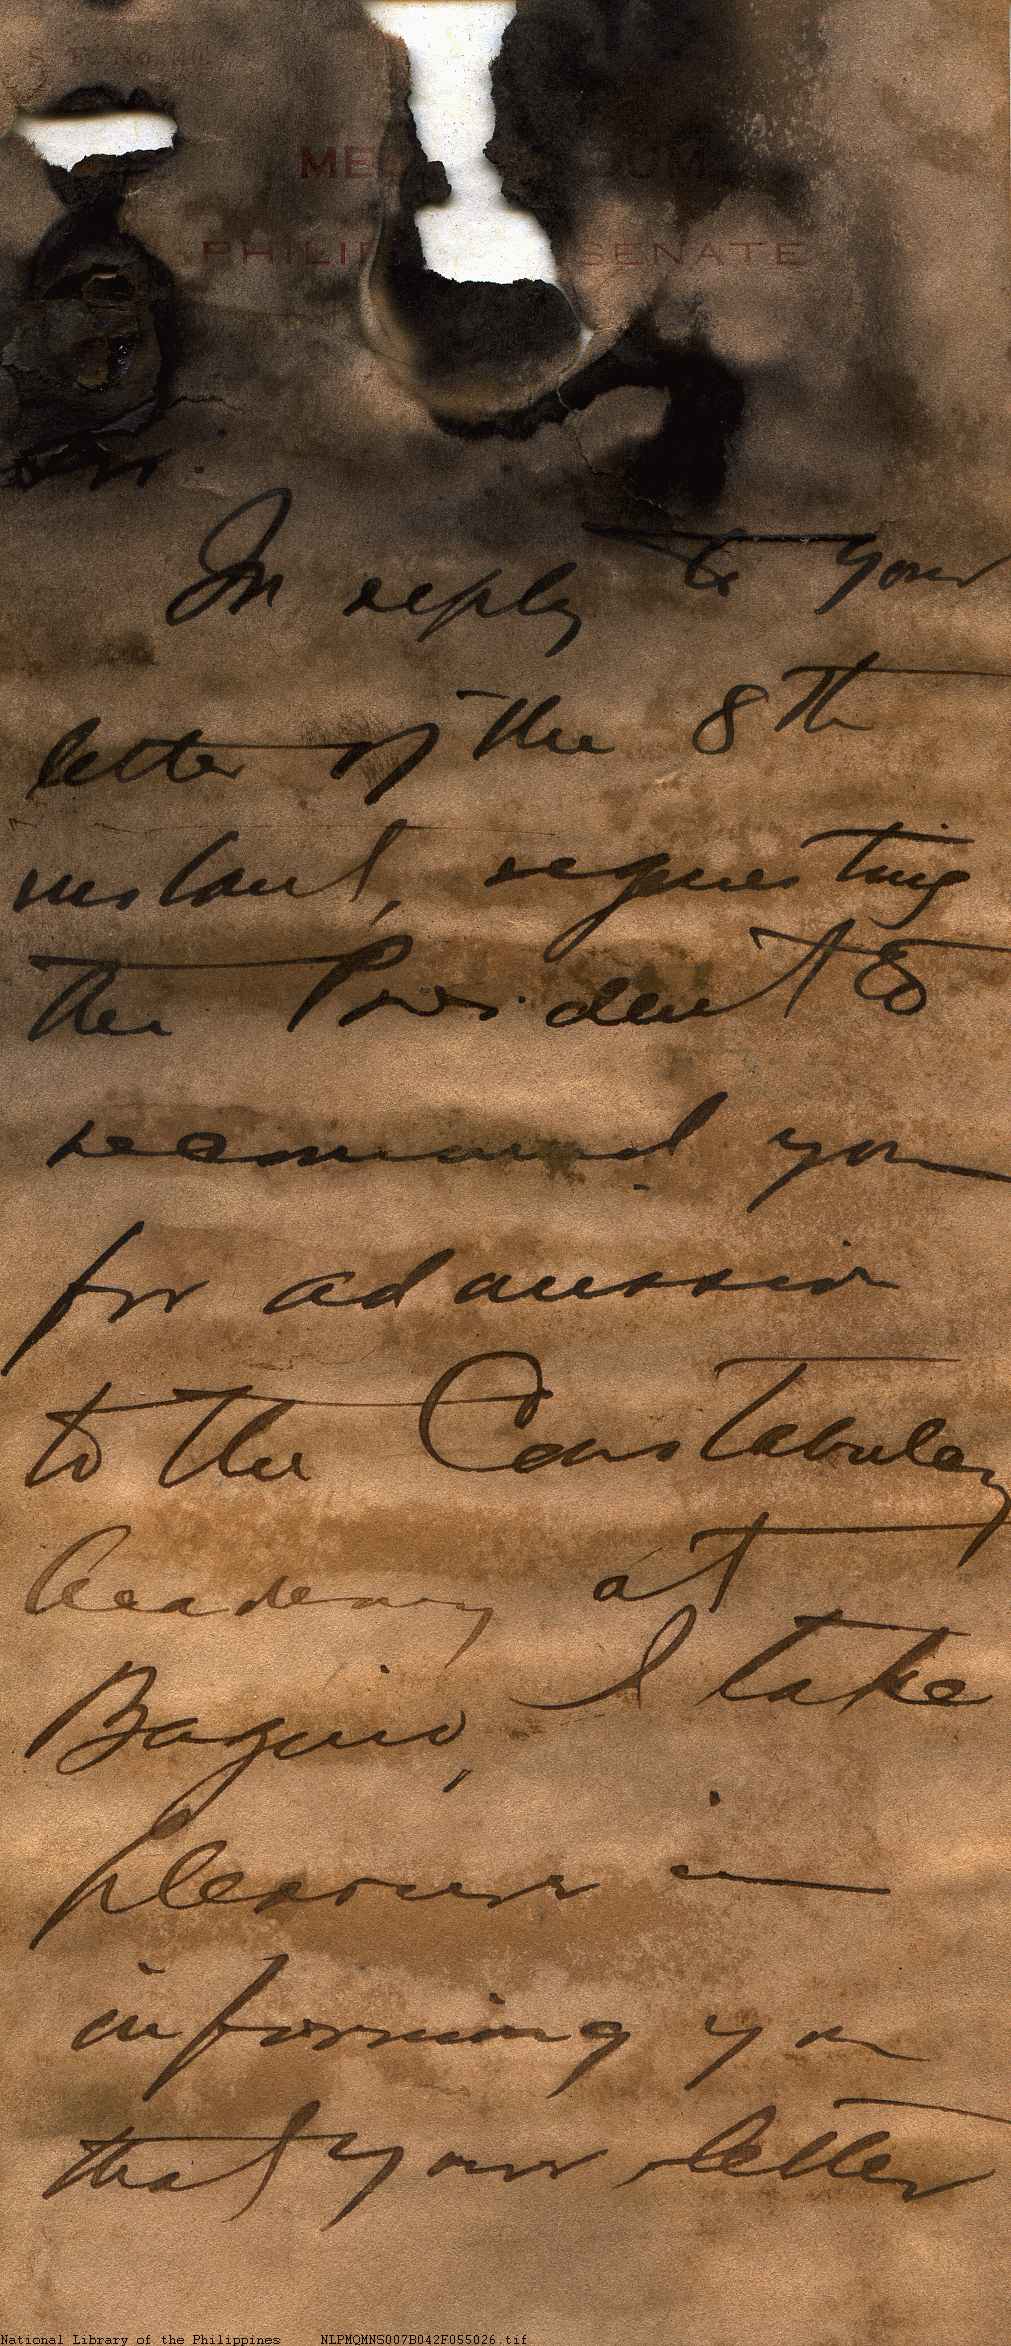 S. F. No.
ME UM
PHILIP SENATE
In reply to your
letter of the 8th
instant, requesting
the President to
recommend you
for admission
to the Constabulary
Academy at
Baguio, I take
pleasure in
informing you
that your letter
National Library of the Philippines NLPMQMNS007B042F055026.tif